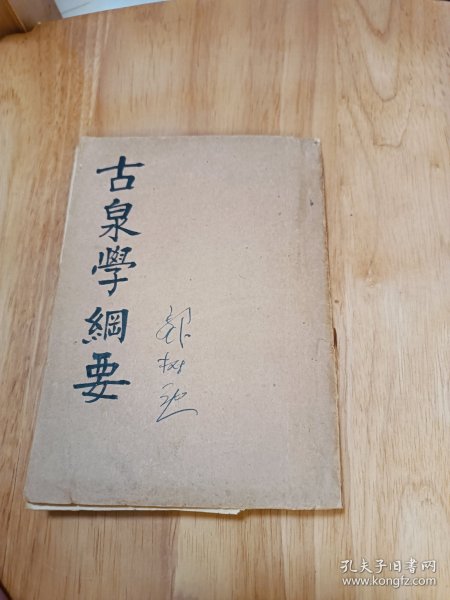 古泉學綱要
孔夫子旧书网
www.kongfz.com